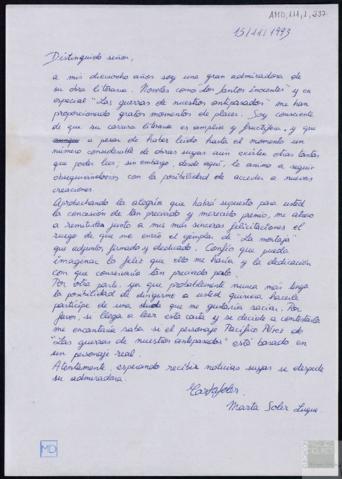 AMD,111,1,237
15/11/1993
Distinguido señor,
a mis dieciocho años soy una gran admiradora de
su obra literaria. Novelas como "Los santos inocentes" y en
especial "Las guerras de nuestros antepasados" me han
proporcionado gratos momentos de placer. Soy consciente
de que su carrera literaria es amplia y fructífera, y que
a pesar de haber leído hasta el momento un
número considerable de obras suyas aún existen otras tantas
que poder leer; sin embargo, desde aquí, le animo a seguir
obsequiándonos con la posibilidad de acceder a nuevas
creaciones.
Aprovechando la alegría que habrá supuesto para usted
la concesión de tan preciado y merecido premio, me atrevo
a remitirle junto a mis más sinceras felicitaciones el
ruego de que me envíe el ejemplar de La mortaja
que adjunto, firmado y dedicado. Confío que pueda
imaginar lo feliz que ello me haría y la dedicación
con que conservaría tan preciado
Por otra parte, ya que probablemente nunca más tenga
la posibilidad de dirigirme a usted quisiera hacerle
partícipe de una duda que me gustaría saciar. Por
favor, si llega a leer esta carta y se decide a contestarla
me encantaría saber si el personaje Pacífico Pérez de
"Las guerras de nuestros antepasados" está basado en
un personaje real.
Atentamente, esperando recibir noticias suyas se despide
su admiradora
Marta Soler
Marta Soler Luque
MD